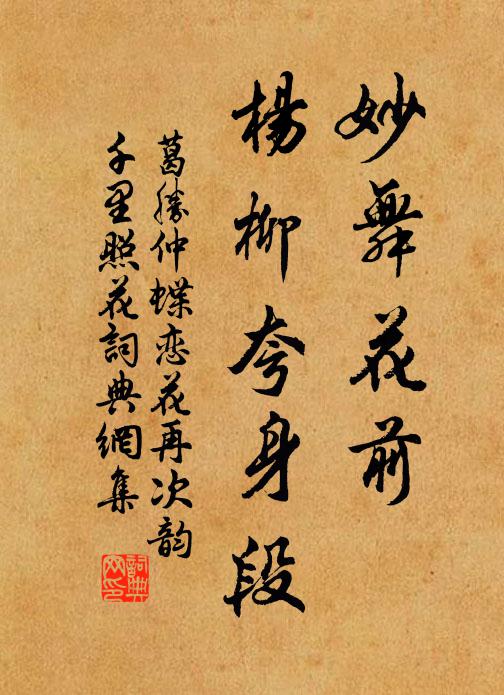 妙舞花前
楊柳夸身段
葛勝仲蝶恋花再次韵
千里照花詞典網集
詞典网印